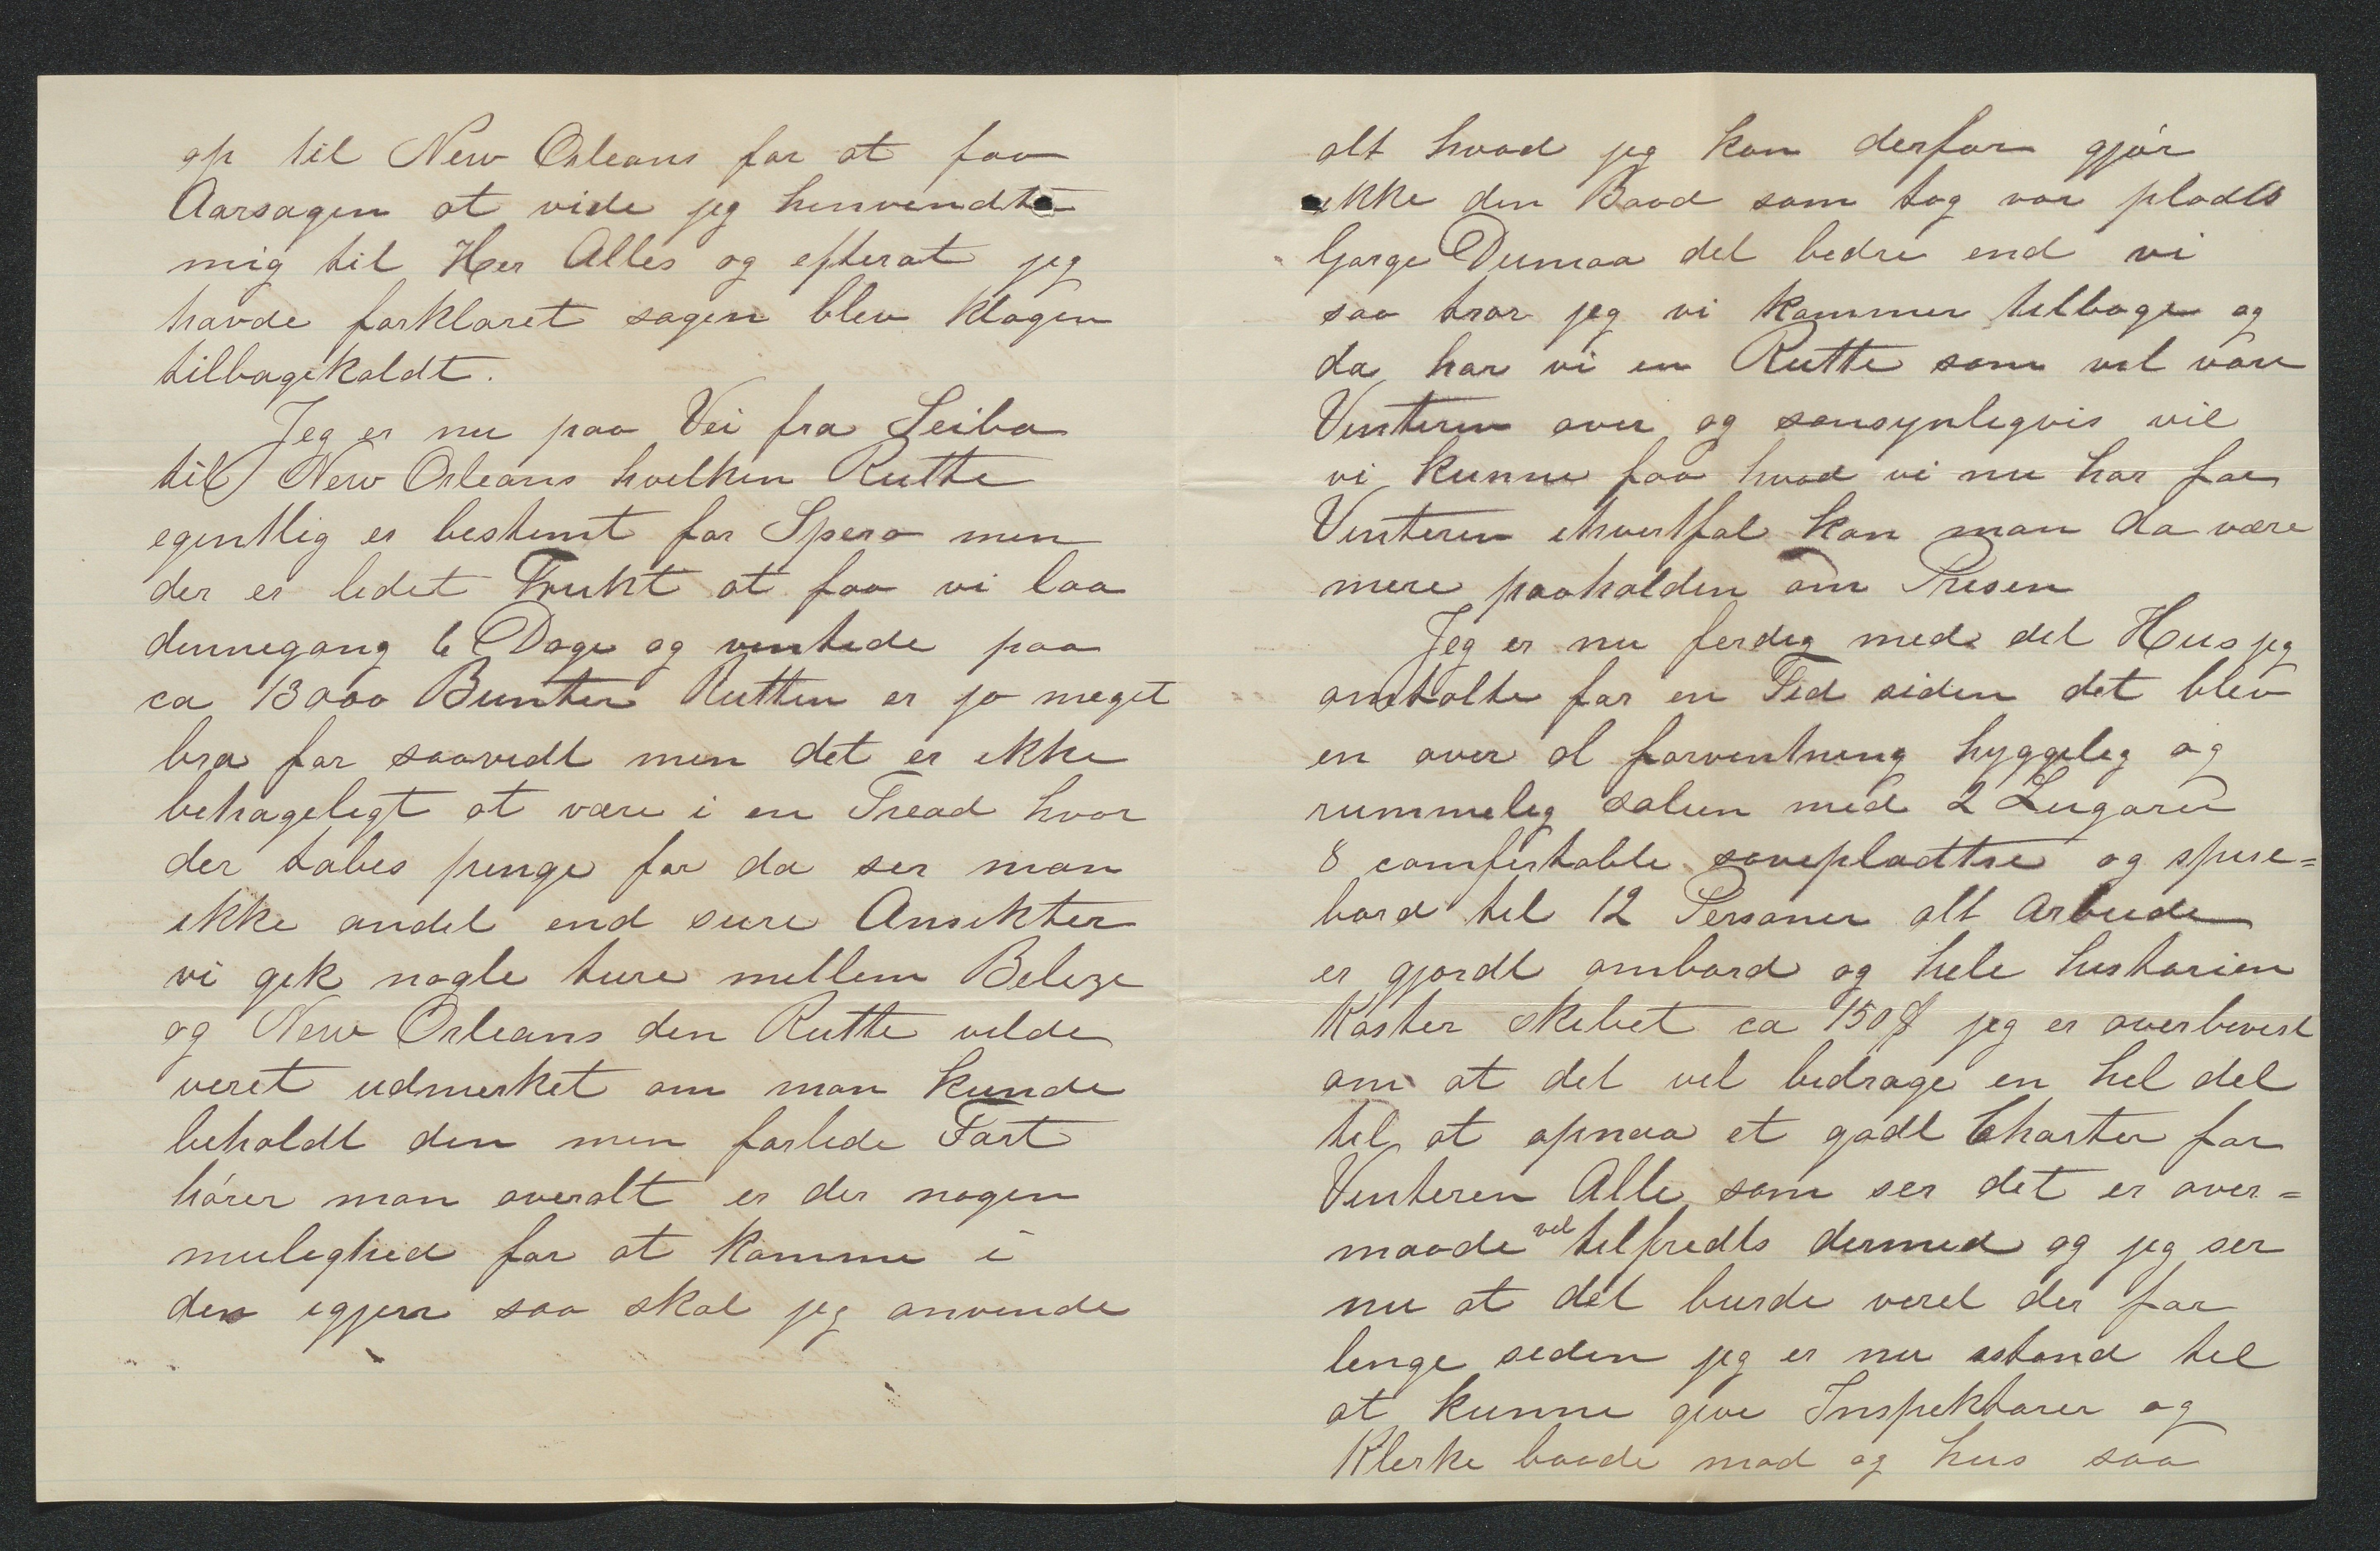 op til New Orleans for at faa
Aarsagen at vide jeg henvendte
mig til Her Alles og efterat jeg
havde forklaret sagen blev klagen
tilbagekaldt.
Jeg er nu paa Vei fra Seiba
til New Orleans hvelken Rutte
egentlig er bestemt for Spero men
der er ledet Frukt at faa vi laa
dennegang 6 Dage og ventede paa
ca 13000 Bunter Rutten er jo meget
bra for saavidt men det er ikke
behageligt at være i en Tread hvor
der tabes penge for da ser man
ikke andet end sure Ansikter
vi gik nogle ture mellem Belize
og New Orleans den Rutte vilde
veret udmerket om man kunde
beholdt den men forlede Fart
hører man overalt er der nogen
mulighed for at komme i
den igjen saa skal jeg anvende
alt hvad jeg kan derfor gjør
ikke den Baad som tog vor plads
Gorge Dumaa det bedre end vi
saa tror jeg vi kommer tilbage og
da har vi en Rutte som vil vare
Vinteren over og sansynligvis vil
vi kunne faa hvad vi nu har for
Vinteren ihvertfal kan man da være
mere paaholden om Prisen
Jeg er nu ferdig med det Hus jeg
omtalte for en Tid siden det blev
en over al forventning hyggelig og
rummelig salun med 2 Lugarer
8 comfertable sovepladtse og spise=
bord til 12 Personer alt Arbeide
er gjordt ombord og hele historien
koster skibet ca 150 $ jeg er overbevist
om at det vil bedrage en hel del
til at opnaa et godt Charter for
Vinteren Alle som ser det er over=
maade vel tilfredts dermed og jeg ser
nu at det burde veret der for
lenge siden jeg er nu istand til
at kunne give Inspektorer og
Klerke baade mad og hus saa